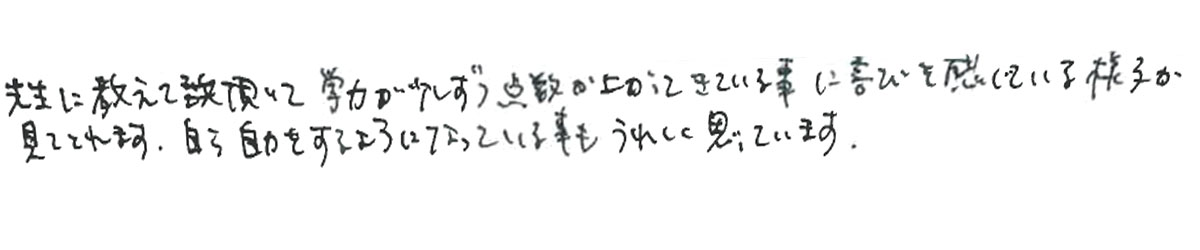 先生に教えて頂いて学力が少しずつ点数が上がってきている事に喜びを感じている様子が
見てとれます。自ら自力をするようになっている事もうれしく思っています。